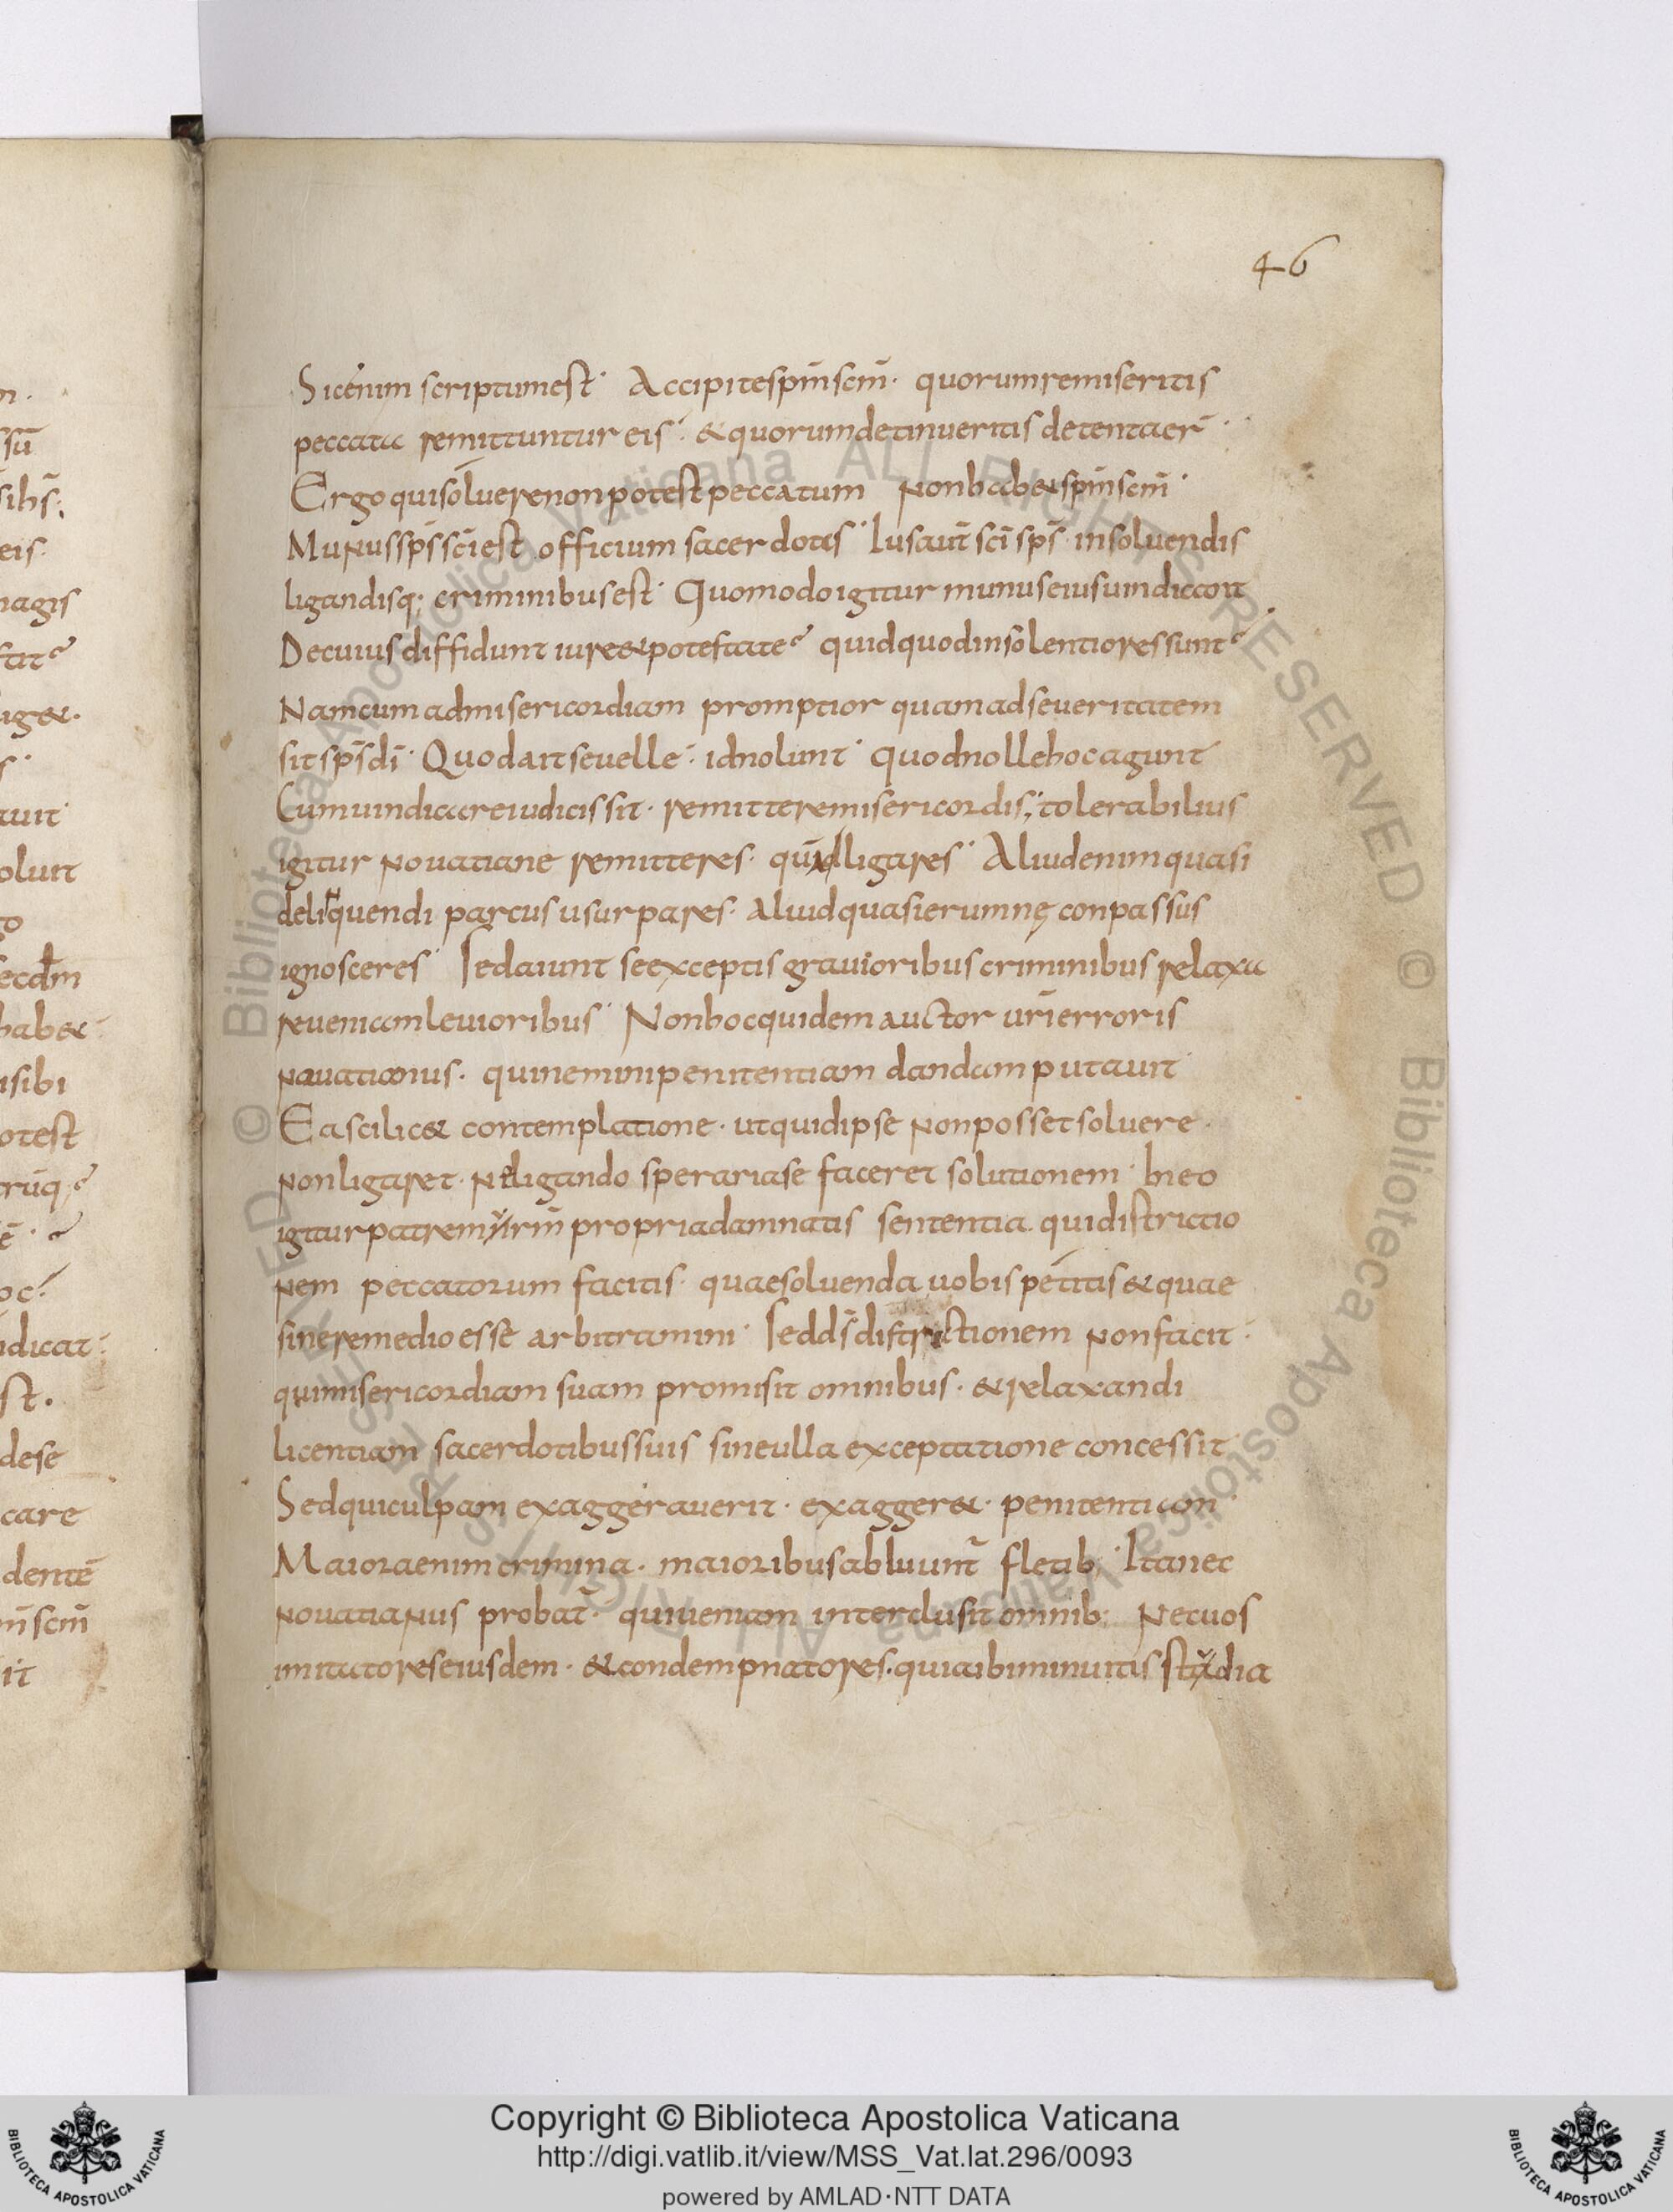 46
Sicenim scriptumest· Accipitespm̄scm̄· quorumremiseritis
peccata remittuntur eis· &quorumdetinueritis detentaer̄·
Ergoquisoluerenonpotestpeccatum nonhab&spm̄scm̄·
Munussps̄ scīest officium sacerdotis· Iusaut̄ scī sps̄· insoluendis
ligandisq; criminibusest· Quomodoigitur munuseiusuindicant
Decuiusdiffidunt iure&potestate? quidquodinsolentioressunt?
Namcumadmisericordiam promptior quamadseueritatem
sitsps̄dī· Quodaitseuelle· idnolunt· quodnollehocagunt
Cumuindicareiudicissit· remitteremisericordis; tolerabilius
igitur nouatiane remitteres· quidligares· Aliudenimquasi
delinquendi parcus usurpares· aliudquasierumnę conpassus
ignosceres· Sedaiunt seexceptis grauioribuscriminibus relaxa
reueniamleuioribus· Nonhocquidem auctor ur̄ierroris
nauatianus· quineminipenitentiam dandamputauit·
Eascilic& contemplatione· utquidipse nonpossetsoluere·
nonligaret· neligando sperariase faceret solutionem· Ineo
igiturpatrem ur̄m propriadamnatis sententia· quidistrictio
nem peccatorum facitis· quaesoluenda uobis petitis&quae
sineremedioesse arbitramini· Sedds̄districtionem nonfacit·
quimisericordiam suam promisit omnibus· &relaxandi
licentiam sacerdotibussuis sineulla exceptatione concessit
Sedquiculpam exaggerauerit· exagger&· penitentiam·
Maioraenimcrimina· maioribusabluunt̄ fletib; Itanec
nouatianus probat̄· quiueniam interclusit omnib; Necuos
imitatoreseiusdem· &condempnatores·quiaibiminuitis studia
n·
sū
sibs̄;
eis·
magis
tat?
ig&·
s·
auit·
olunt
go
secdm̄
hab&·
isibi
otest
rūq;?
ē·?
oc?
idicat·
st·
dese
care
dentē
m̄scm̄
it
© Biblioteca Apostolica Vaticana ALL RIGHTS RESERVED © Biblioteca Apostolica Vaticana ALL RIGHTS RESERVED
BIBLIOTECA APOSTOLICA VATICANA
Copyright © Biblioteca Apostolica Vaticana
http://digi.vatlib.it/view/MSS_Vat.lat.296/0093
powered by AMLAD·NTT DATA
BIBLIOTECA APOSTOLICA VATICANA